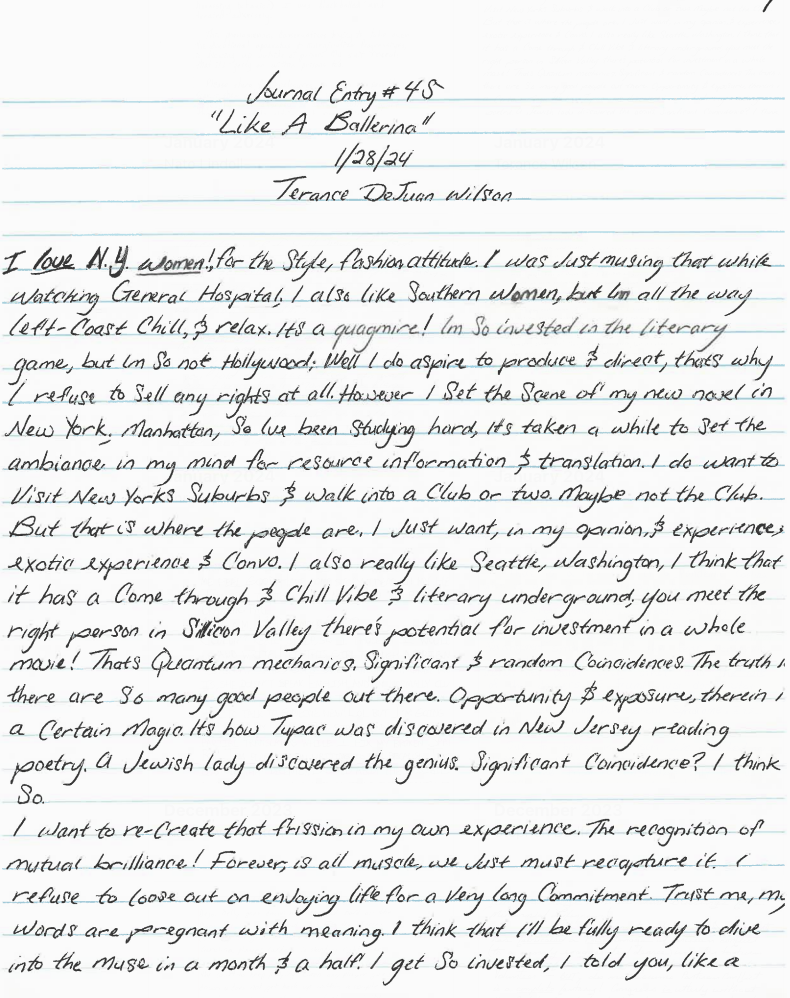 1
Journal Entry # 45
"Like A Ballerina"
1/28/24
Terance DeJuan Wilson
I love N.Y. women!, for the Style, fashion attitude. I was Just musing that while
Watching General Hospital, I also like Southern Women, but Im all the way
left-Coast Chill, & relax. Its a quagmire! Im So invested in the literary
game, but Im So not Hollywood; Well I do aspire to produce & direct, thats why
I refuse to Sell any rights at all. However I Set the Scene of my new novel in
New York. Manhattan, So Ive been Studying hard, its taken a while to Set the
ambiance in my mind for resource information & translation. I do want to
Visit New Yorks Suburbs & walk into a Club or two. Maybe not the Club.
But that is where the people are. I Just want, in my opinion, & experience,
exotic experience & Convo. I also really like Seattle, Washington, I think that
it has a Come through & Chill Vibe & literary underground, you meet the
right person in Silicon Valley there's potential for investment in a whole
movie! Thats Quantum mechanics. Significant & random Coincidences. The truth i
there are So many good people out there. Opportunity & exposure, therein i
a Certain Magic. Its how Tupac was discovered in New Jersey reading
poetry. A Jewish lady discovered the genius. Significant Coincidence? I think
So.
I want to re-Create that frission in my own experience. The recognition of
mutual brilliance! Forever, is all muscle, we Just must recapture it. I
refuse to loose out on enjoying life for a Very long Commitment. Trust me, my
Words are pregnant with meaning. I think that I'll be fully ready to dive
into the Muse in a month & a half. I get So invested, I told you, like a